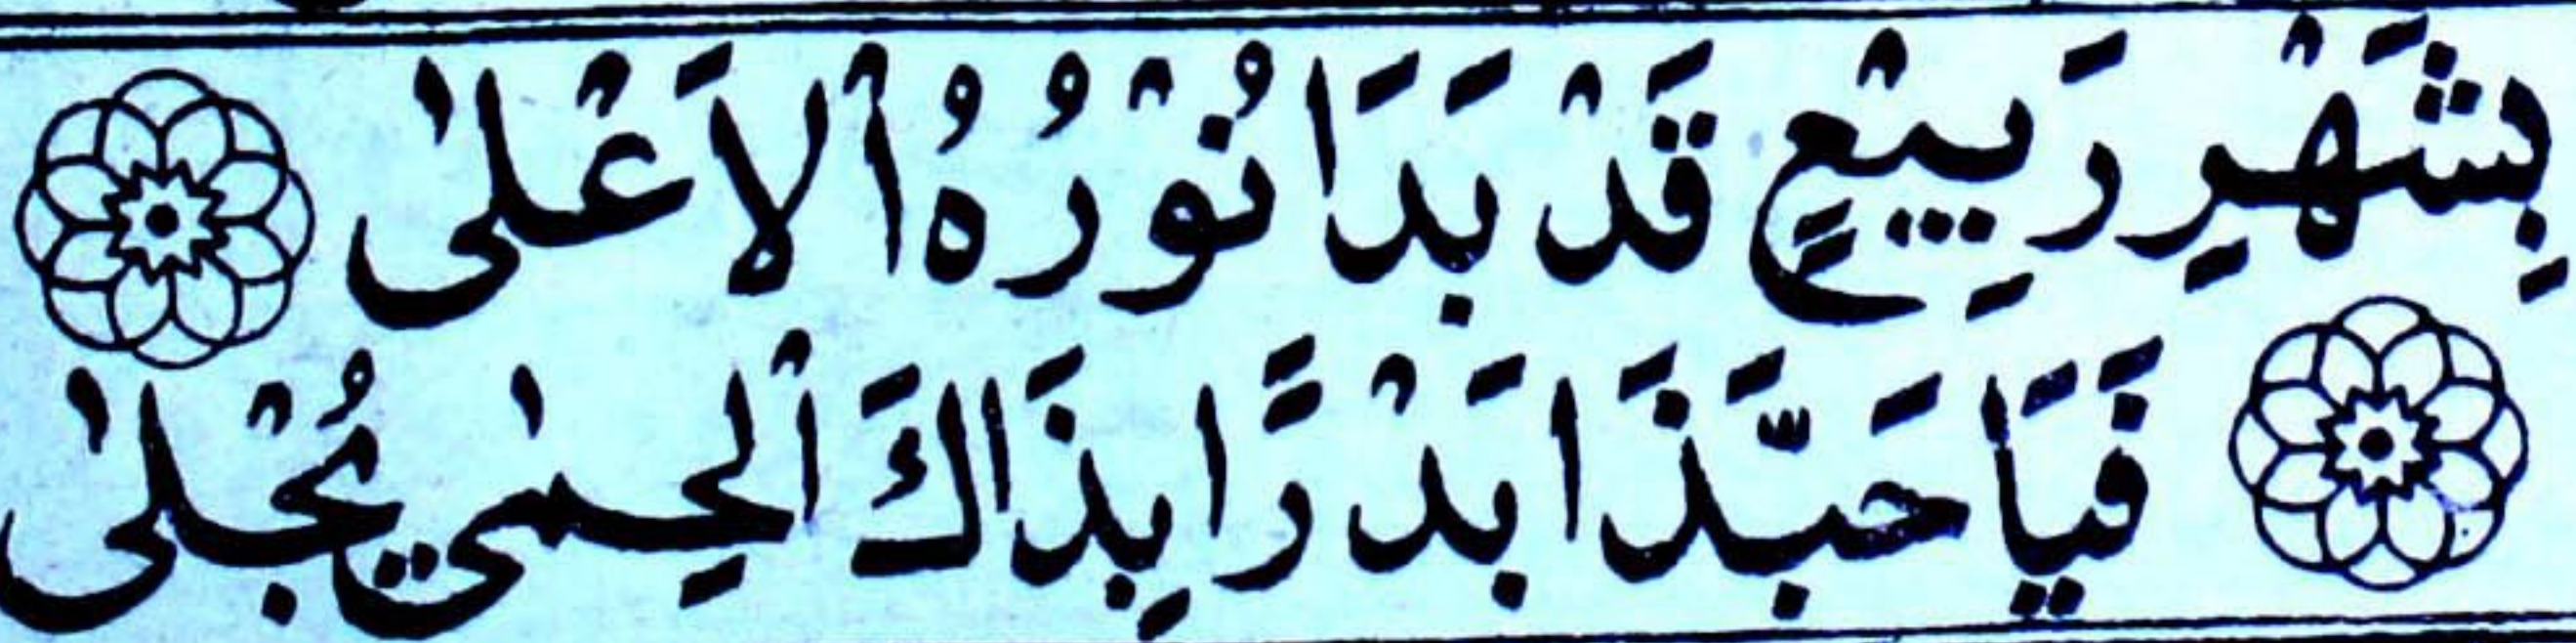 بِشَهْرِ رَبِيْعٍ قَدْ بَدَا نُوْرُهُ ٱلاَعْلىٰ
فَيَا حَبَّذَا بَدْرًا بِذَاكَ ٱلْحِمىٰ يُجْلىٰ